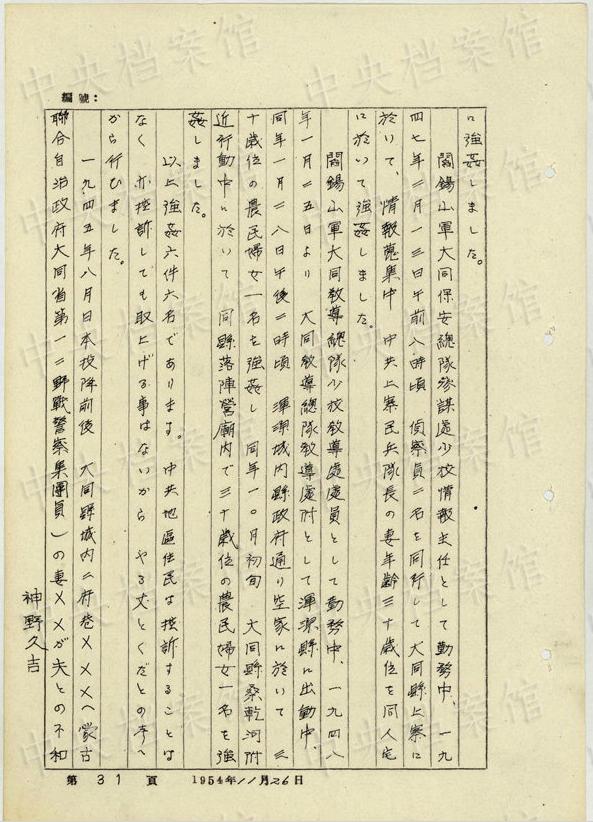 編號：
に強姦しました。
閻錫山軍大同保安總隊參謀處少校情報主任として勤務中、一九
四七年二月一三日午前八時頃　偵察員二名を同行して大同縣上寨に
於いて、情報蒐集中　中共上寨民兵隊長の妻年齢三十歳位を同人宅
に於いて強姦しました。
閻錫山軍大同教導總隊少校教導處處員として勤務中、一九四八
年一月二五日より　大同教導總隊教導處附として渾源縣に出動中、
同年一月二八日午後二時頃　渾源城内縣政府通り空家に於いて　三
十歳位の農民婦女一名を強姦し　同年一〇月初旬　大同縣桑乾河附
近行動中に於いて　同縣落陣營廟内で三十歳位の農民婦女一名を強
姦しました。
以上強姦六件六名であります。　中共地區住民は控訴することは
なく　亦控訴しても取上げる事はないから　やる丈とくだとの考へ
から行ひました。
一九四五年八月日本投降前後　大同縣城内二府巷×××へ蒙古
聯合自治政府大同省第一二野戰警察集團員）の妻××が夫との不和
神野久吉
第 31 頁　1954年11月26日
中央档案馆